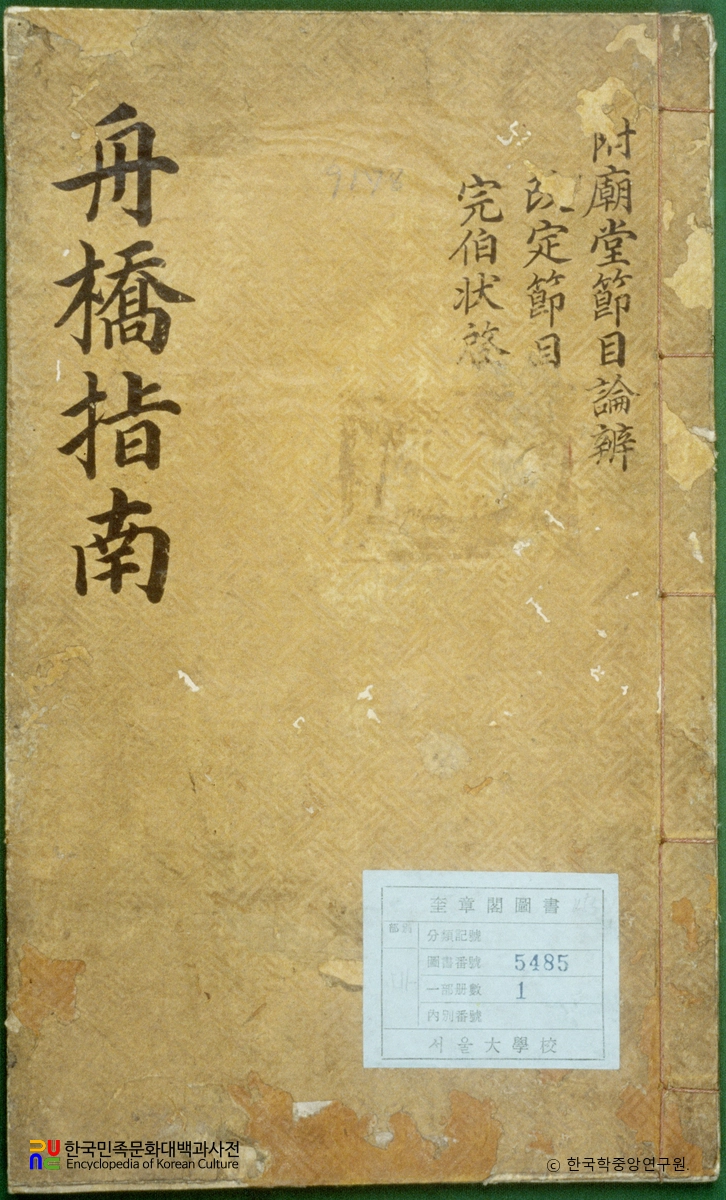 舟橋指南
附廟堂節目論辨
改定節目
完伯状啓
奎章閣圖書
分類記號
圖書番號 5485
一部册數 1
內別番號
서울大學校
한국민족문화대백과사전
Encyclopedia of Korean Culture
© 한국학중앙연구원.